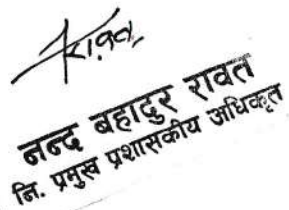 रावत
नन्द बहादुर रावत
नि. प्रमुख प्रशासकीय अधिकृत